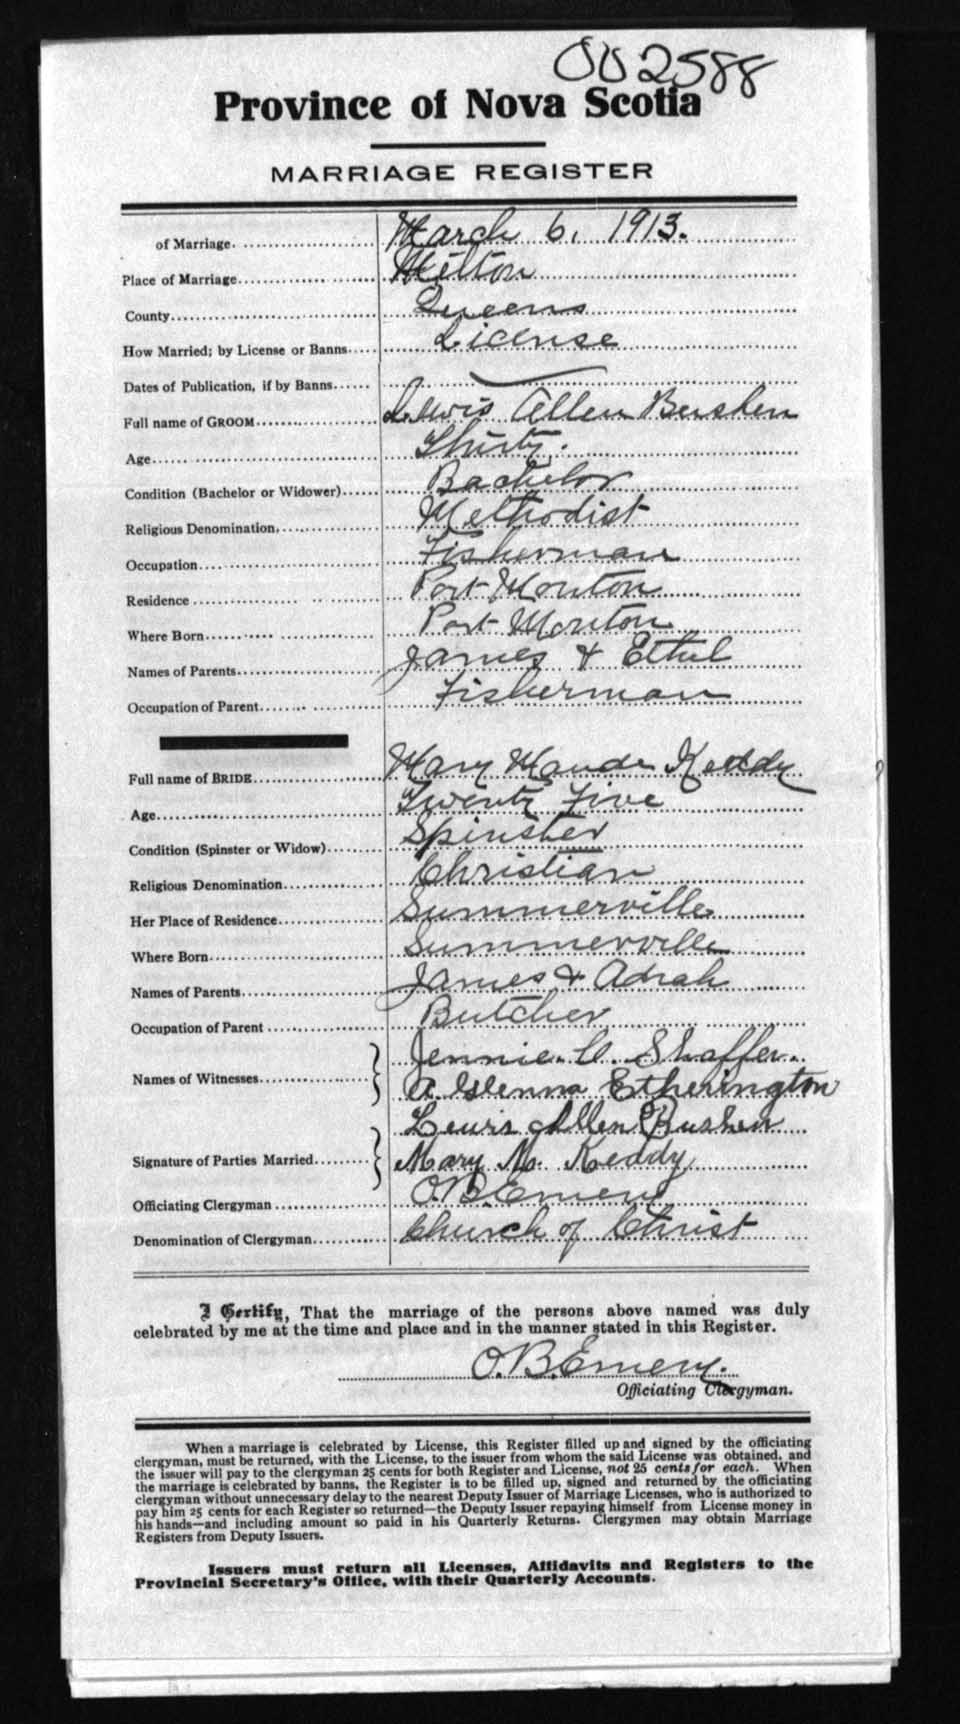 002588
Province of Nova Scotia
MARRIAGE REGISTER
of Marriage. March 6, 1913.
Place of Marriage Milton
County Queens
How Married; by License or Banns License
Dates of Publication, if by Banns
Full name of GROOM Lewis Allen Bushen
Age Thirty.
Condition (Bachelor or Widower) Bachelor
Religious Denomination Methodist
Occupation Fisherman
Residence Port Mouton
Where Born Port Mouton
Names of Parents James & Ethel
Occupation of Parent Fisherman
Full name of BRIDE Mary Maude Keddy
Age Twenty Five
Condition (Spinster or Widow) Spinster
Religious Denomination Christian
Her Place of Residence Summerville
Where Born Summerville
Names of Parents James & Adrah
Occupation of Parent Butcher
Jennie C. Shaffer.
Names of Witnesses A. Glenna Etherington
Lewis Allen Bushen
Signature of Parties Married Mary M. Keddy
Officiating Clergyman O.B. Emery
Denomination of Clergyman Church of Christ
I Certify, That the marriage of the persons above named was duly
celebrated by me at the time and place and in the manner stated in this Register.
O.B. Emery.
Officiating Clergyman.
When a marriage is celebrated by License, this Register filled up and signed by the officiating
clergyman, must be returned, with the License, to the issuer from whom the said License was obtained, and
the issuer will pay to the clergyman 25 cents for both Register and License, not 25 cents for each. When
the marriage is celebrated by banns, the Register is to be filled up, signed and returned by the officiating
clergyman without unnecessary delay to the nearest Deputy Issuer of Marriage Licenses, who is authorized to
pay him 25 cents for each Register so returned—the Deputy Issuer repaying himself from License money in
his hands—and including amount so paid in his Quarterly Returns. Clergymen may obtain Marriage
Registers from Deputy Issuers.
Issuers must return all Licenses, Affidavits and Registers to the
Provincial Secretary's Office, with their Quarterly Accounts.